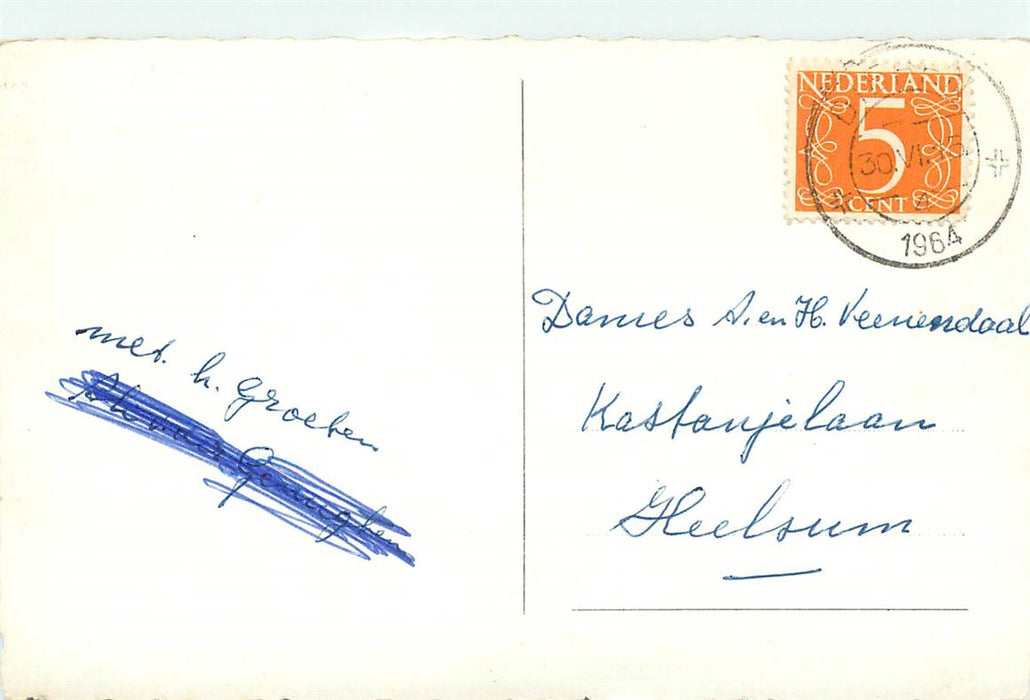 NEDERLAND
5
CENT
30.VI.
1964
met. h. Groeten
Dames A. en H. Veenendaal
Kastanjelaan
Heelsum